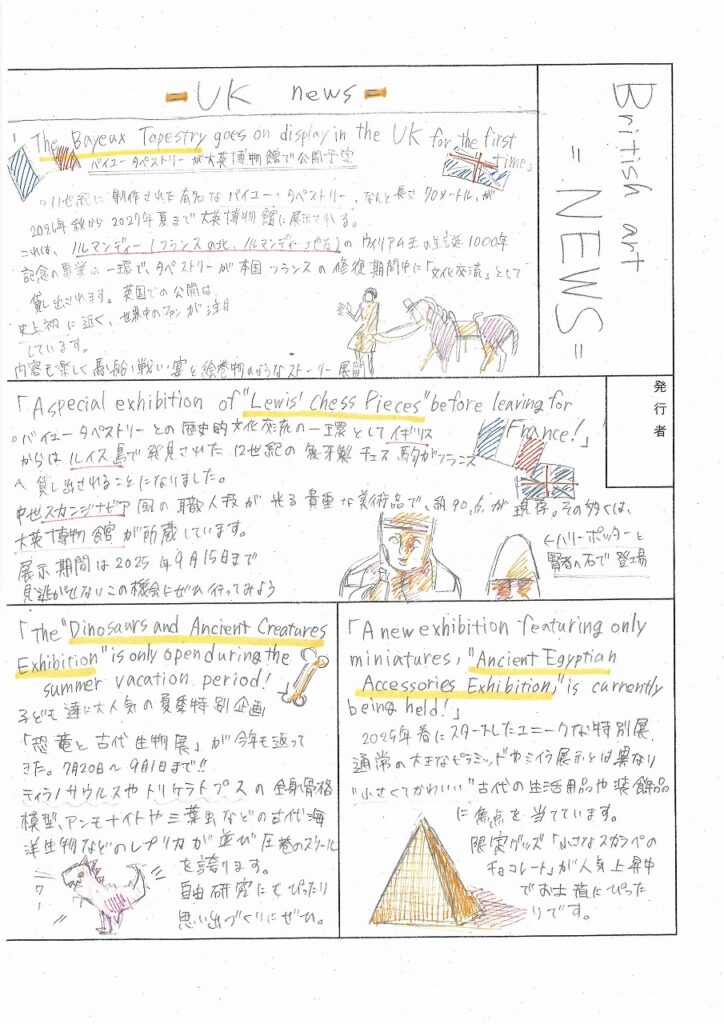 British art
= NEWS =
発行者
- UK news -
「The Bayeux Tapestry goes on display in the UK for the first time」
バイユータペストリーが大英博物館で公開予定
○11世紀に制作された有名なバイユー・タペストリー、なんと長さ70メートル、が
2026年秋から2027年夏まで大英博物館に展示される。
これは、ノルマンディー(フランスの北、ノルマンディー地方)のウィリアム王の生誕1000年
記念の事業の一環で、タペストリーが本国フランスの修復期間中に「文化交流」として
貸し出されます。英国での公開は
史上初に近く、世界中のファンが注目
しています。
内容も楽しく馬、船、戦い、宴と絵巻物のようなストーリー展開
「A special exhibition of "Lewis' Chess Pieces" before leaving for
France!」
○バイユータペストリーとの歴史的文化交流の一環としてイギリス
からはルイス島で発見された12世紀の象牙製チェス駒がフランス
へ貸し出されることになりました。
中世スカンジナビア風の職人技が光る貴重な美術品で、約90点が現存。その多くは、
大英博物館が所蔵しています。
展示期間は2025年9月15日まで
見逃がせないこの機会にぜひ行ってみよう
←ハリーポッターと
賢者の石で登場
「the "Dinosaurs and Ancient Creatures
Exhibition" is only open during the
summer vacation period!
子ども達に大人気の夏季特別企画
「恐竜と古代生物展」が今年も返って
きた。7月20日〜9月1日まで!!
ティラノサウルスやトリケラトプスの全身骨格
模型、アンモナイトや三葉虫などの古代海
洋生物などのレプリカが並び圧巻のスケール
を誇ります。
自由研究にもぴったり
思い出づくりにぜひ。
「A new exhibition featuring only
miniatures, "Ancient Egyptian
Accessories Exhibition," is currently
being held!」
2025年春にスタートしたユニークな特別展、
通常の大きなピラミッドやミイラ展示とは異なり
"小さくてかわいい"古代の生活用品や装飾品
に焦点を当てています。
限定グッズ「小さなスカラベの
チョコレート」が人気上昇中
でお土産にぴった
りです。